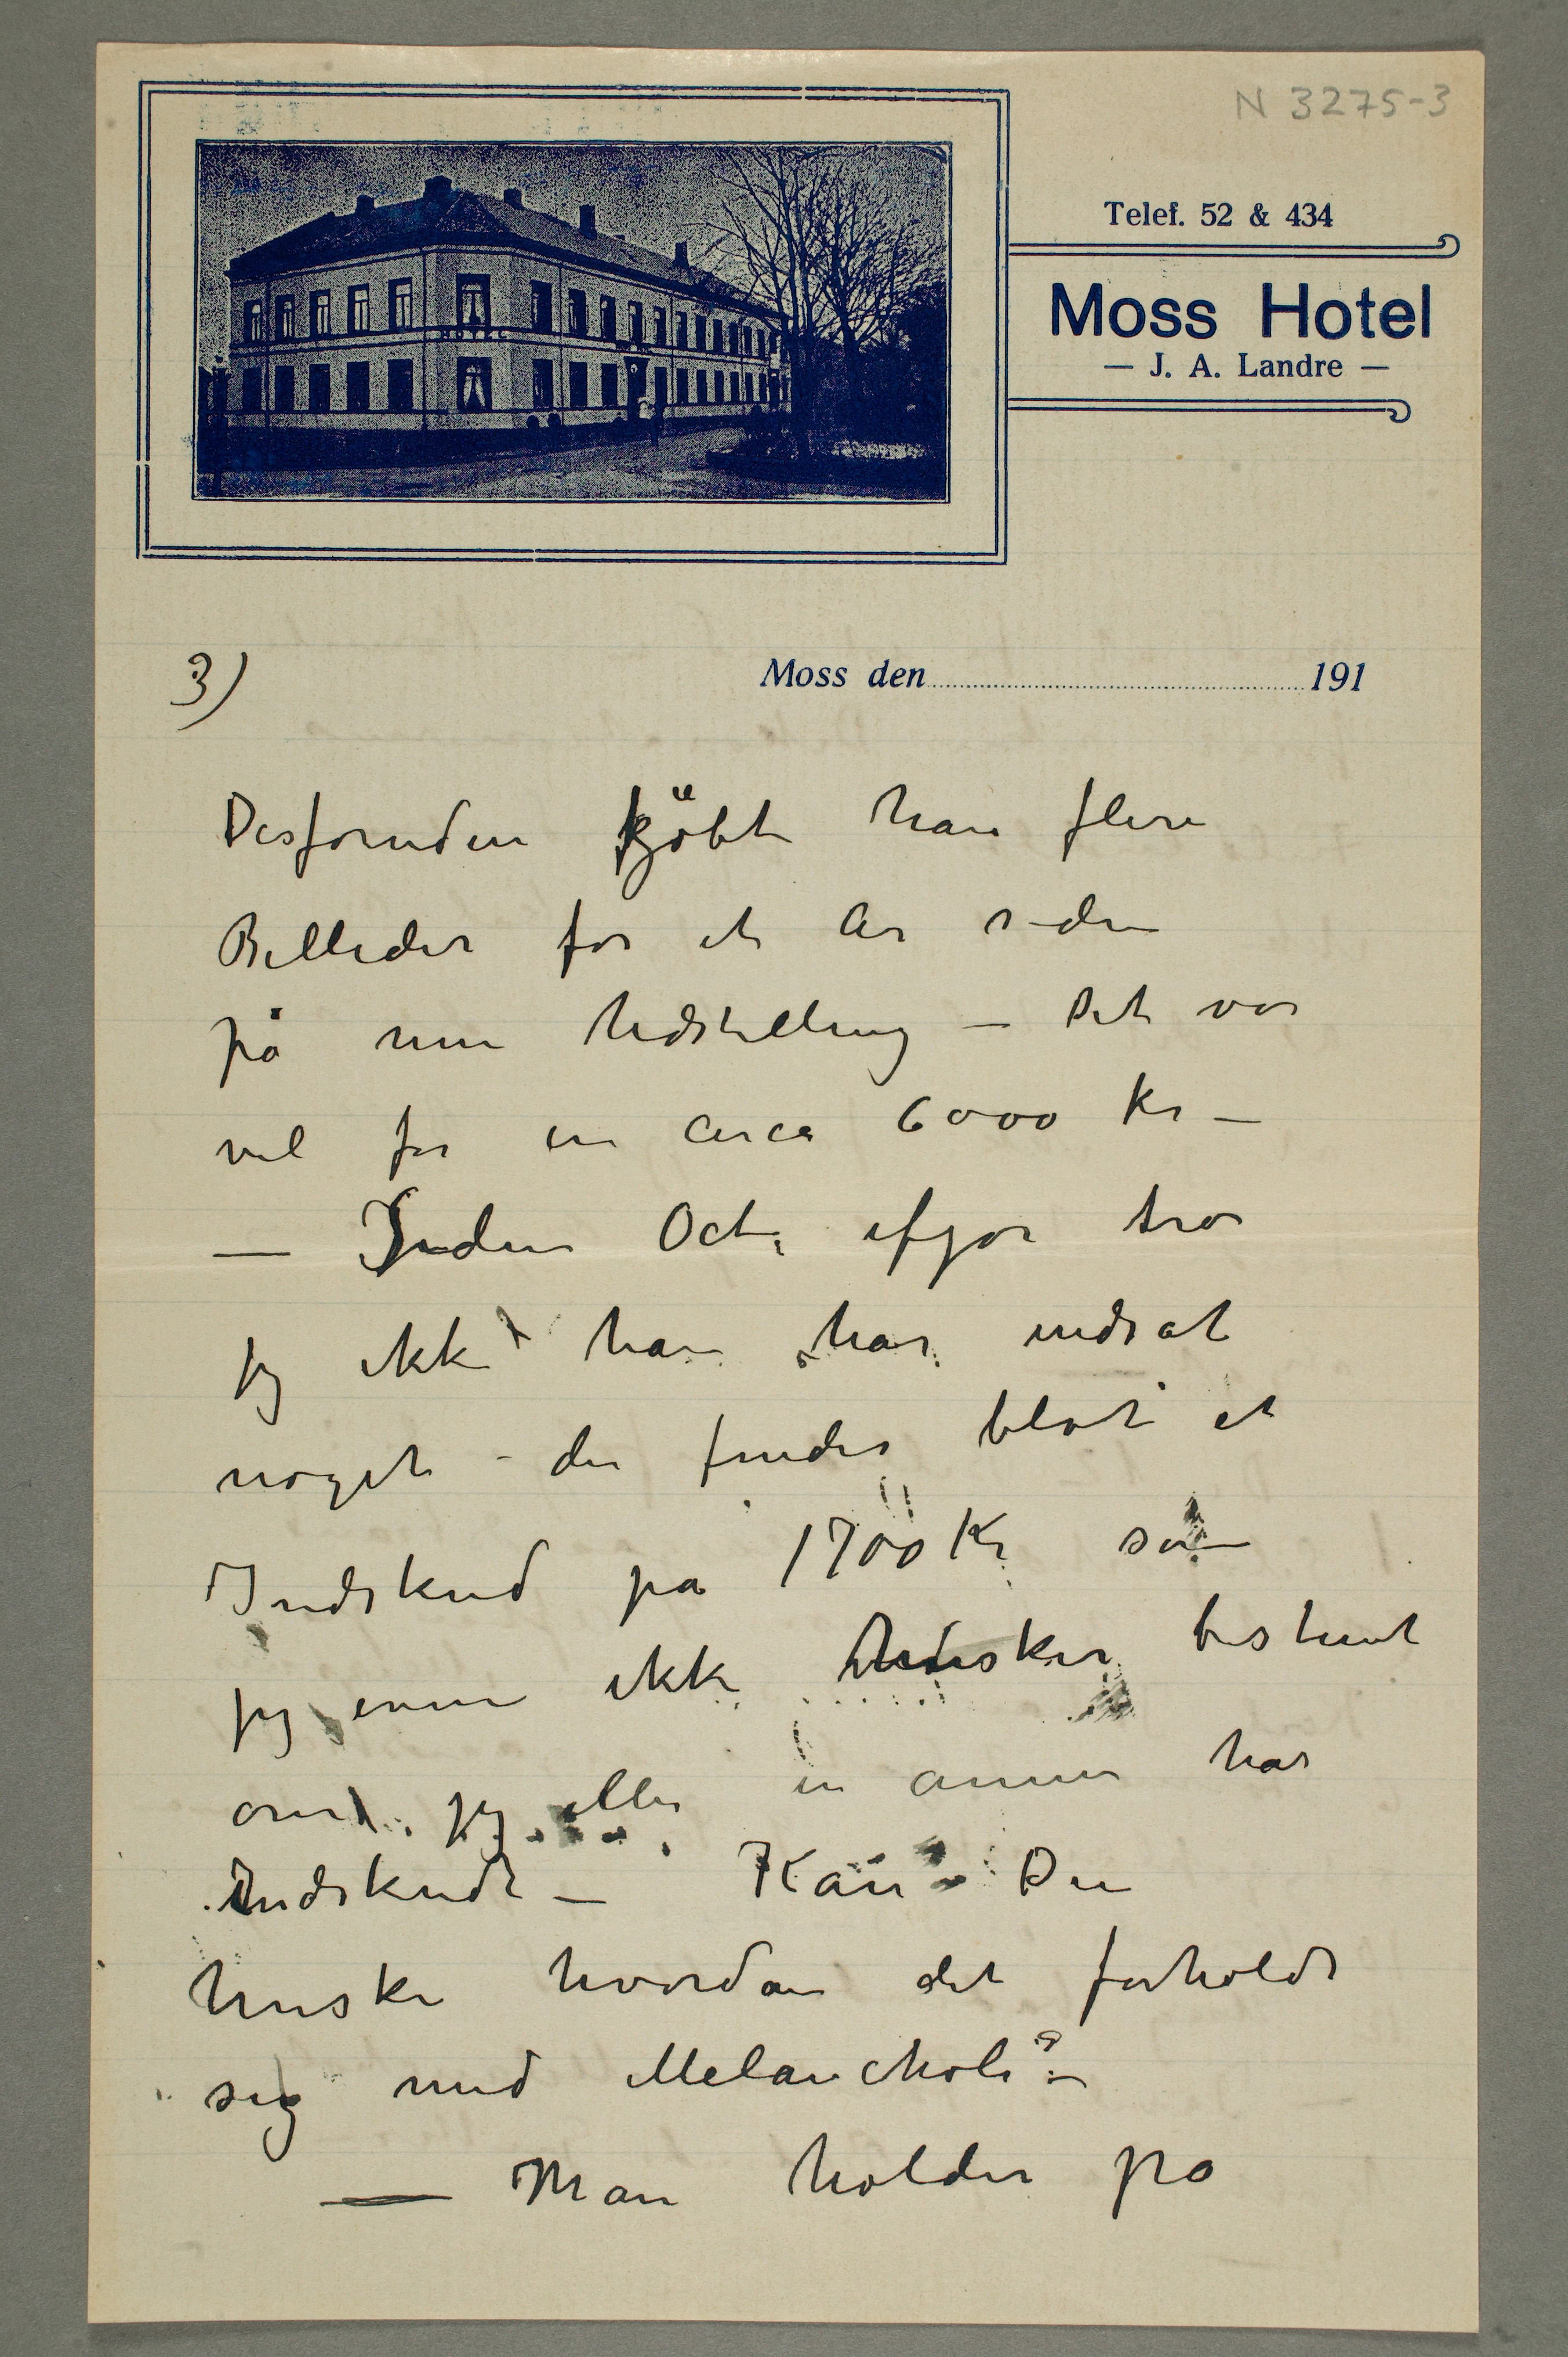 N 3275-3
Telef. 52 & 434
Moss Hotel
— J. A. Landre —
3)
Moss den 191
Desforuden kjöbte han flere
Billeder for et År siden
på min Udstilling – Det var
vel for en circa 6000 Kr –
— Siden Oct. ifjor tror
jeg ikke han har indsat
noget – der findes blot et
Indskud på 1700 Kr som
jeg ikke husker bestemt
om jeg eller en annen har
Indskudt – Kan Du
huske hvordan det forholdt
sig med Melancholi? –
— Man holder på